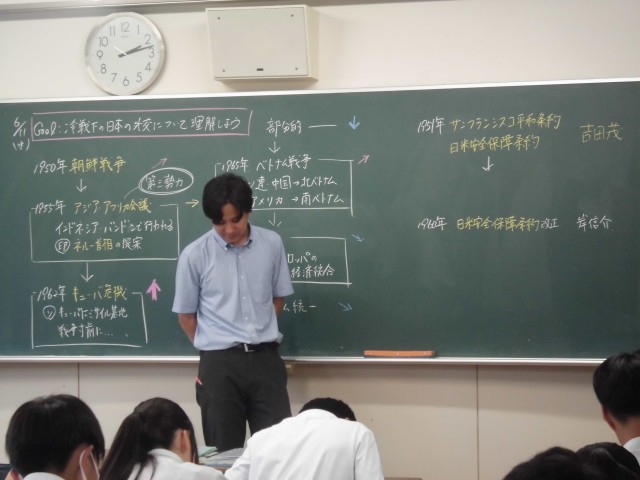 6/11
(水)
Goal:冷戦下の日本の外交について理解しよう
1950年 朝鮮戦争
第三勢力
1955年 アジア・アフリカ会議
インドネシア バンドンで行われる
印 ネルー首相の提案
1962年 キューバ危機
ソ キューバにミサイル基地
戦争寸前に…
部分的
1965年 ベトナム戦争
連・中国→北ベトナム
メリカ→南ベトナム
ロッパの
経済統合
統一
1951年 サンフランシスコ平和条約
日米安全保障条約
吉田茂
1960年 日米安全保障条約改正
岸信介